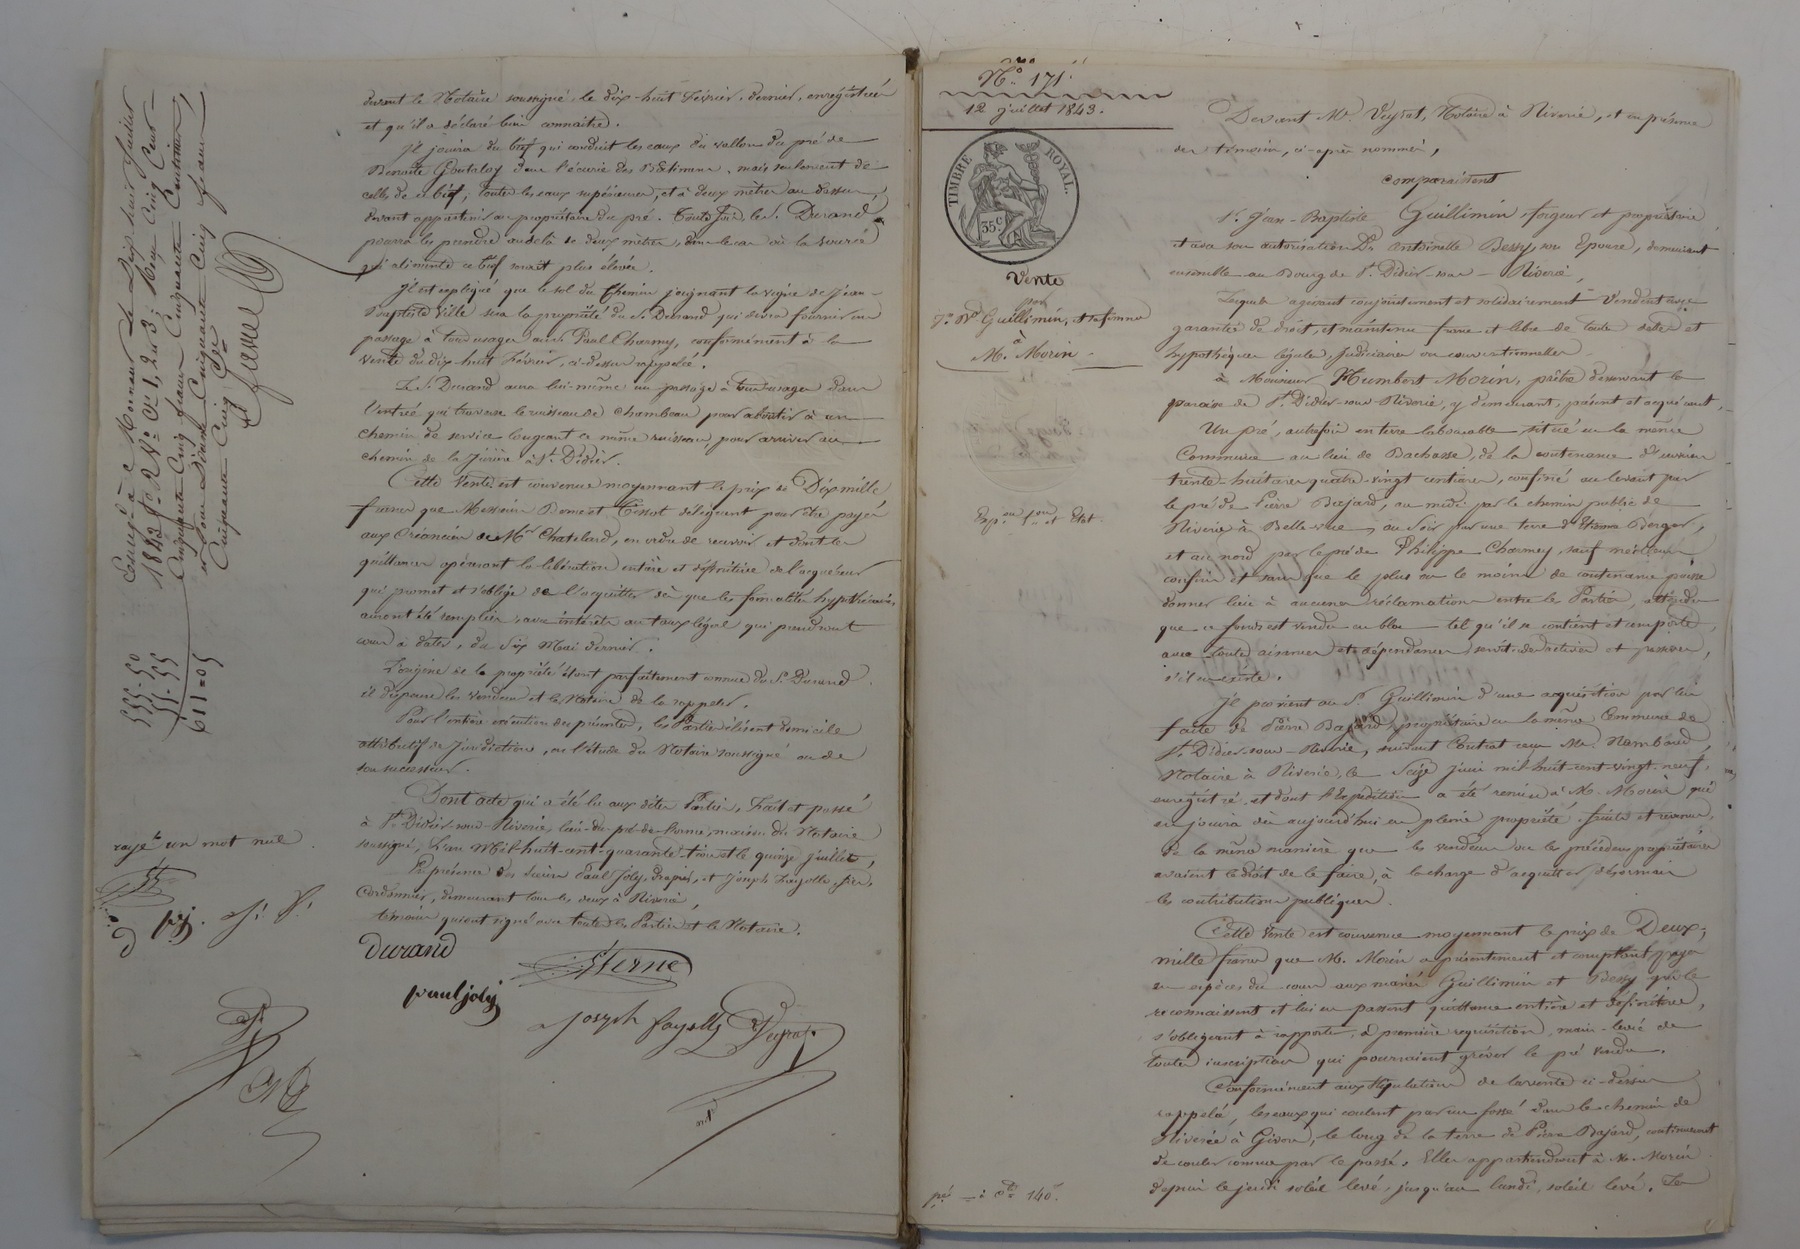 devant le Notaire soussigné, le dix-huit Février dernier, enregistrée
et qu'il a déclaré bien connaitre.
Il jouira du bief qui conduit les eaux du vallon du pré de
Benoite Goutaloy dans l'écurie des Bâtimens, mais seulement de
celles de ce bief; toutes les eaux supérieures, et à deux mètres au dessus,
devant appartenir au propriétaire du pré. Toute fois, le S. Durand
pourra les prendre au delà de deux mètres, dans le cas où la source
qui alimente ce bief serait plus élevée.
Il est expliqué que le sol du Chemin joignant la vigne de Jean-
Baptiste Ville sera la propriété du S. Durand qui devra fournir un
passage à tous usages au S. Paul Charmy, conformément à la
vente du dix huit Février, ci-dessus rappelée.
Le S. Durand aura lui-même un passage à tous usages dans
l'entrée qui traverse le ruisseau de Chambeau pour aboutir à un
chemin de service longeant ce même ruisseau, pour arriver au
chemin de la à St. Didier.
Cette Vente est convenue moyennant le prix de Dix mille
francs que Messieurs et Tissot délèguent pour être payés
aux Créanciers de Mr. Chatelard, en ordre de recevoir et dont les
quittances opéreront la libération entière et définitive de l'acquéreur
qui promet et s'oblige de l'acquitter dès que les formalités hypothécaires,
auront été remplies, avec intérêts au taux légal qui prendront
cours à dater, du Six Mai dernier.
L'origine de la propriété étant parfaitement connue du S. Durand
il dispense les vendeurs et le Notaire de la rappeler.
Pour l'entière exécution des présentes, les Parties élisent domicile
attributif de Juridiction, en l'étude du Notaire soussigné ou de
son successeur.
Dont acte qui a été lu aux dites Parties, Fait et passé
à St. Didier-sous-Riverie, lieu-du-pré-de-, maison du Notaire
soussigné, L'an Mil-huit-cent-quarante-trois et le quinze juillet,
En présence des Sieurs Paul Joly, Drapier, et Joseph Fayolle, fils,
Cordonnier, demeurant tous les deux à Riverie,
témoins qui ont signé avec toutes les Parties et le Notaire.
durand
Sterne
paul joly
Joseph fayolle
rayé un mot nul.
D
pj.
J. f.
Enregté à Mornant le Dix huit Juillet
1843 fo
Cinquante Cinq francs Cinquante Centimes,
Cinquante Cinq francs
Cinquante Cinq Cmes
555.50
55.55
611=05
No. 171.
12 juillet 1843.
TIMBRE ROYAL.
35 C.
Vente
par
J. Bte. Guillimin, et sa femme
à
M. Morin
Exp.on 1.on et Etat.
Devant Me. Veyrat, Notaire à Riverie, et en présence
des témoins, ci-après nommés,
comparaissent
Sr. Jean-Baptiste Guillimin forgeur et propriétaire
et avec son autorisation De. antoinette Bessy, son Epouse, demeurant
ensemble au Bourg de St. Didier-sous-Riverie,
Lesquels agissant conjointement et solidairement Vendent avec
garantie de droit, et maintenue franc et libre de toutes dettes et
hypothèques légales, judiciaires ou conventionnelles
à Monsieur Humbert Morin, prêtre desservant la
paroisse de St. Didier-sous-Riverie, y demeurant, présent et acquérant,
Un pré, autrefois en terre labourable, situé en la même
Commune au lieu de Bachasse, de la contenance d'environ
trente-huit ares quatre-vingt centiares, confiné au levant par
le pré de Pierre Bajard, au midi par le chemin public de
Riverie à Belle-vue, au Soir par une terre d'Etienne Berger,
et au nord par le pré de Philippe Charmey, sauf meilleurs
confins et sans que le plus ou le moins de contenance puisse
donner lieu à aucune réclamation entre les Parties, attendu
que ce fonds est vendu en bloc tel qu'il se contient et comporte,
avec toutes aisances et dépendances servitudes actives et passives,
s'il en existe.
Il provient au S. Guillimin d'une acquisition par lui
faite de Pierre Bajard, propriétaire en la même Commune de
St. Didier-sous-Riverie, suivant Contrat reçu Me. Nambaud,
Notaire à Riverie, le Seize juin mil-huit-cent-vingt-neuf,
enregistré, et dont l'Expédition a été remise à M. Morin qui
en jouira dès aujourd'hui en pleine propriété, fruits et revenus,
de la même manière que les vendeurs ou les précédens propriétaires
avaient le droit de le faire, à la charge d'acquitter désormais
les contributions publiques.
Cette Vente est convenue moyennant le prix de Deux
mille francs que M. Morin a présentement et comptant payés
en espèces du cours aux mariés Guillimin et Bessy qui le
reconnaissent et lui en passent quittance entière et définitive,
s'obligeant à rapporter à première réquisition, main-levée de
toutes inscriptions qui pourraient gréver le pré vendu.
Conformément aux stipulations de la vente ci-dessus
rappelée, les eaux qui coulent par un fossé dans le chemin de
Riverie à Givors, le long de la terre de Pierre Bajard, continueront
de couler comme par le passé. Elles appartiendront à M. Morin
depuis le jeudi soleil levé, jusqu'au lundi, soleil levé. Les